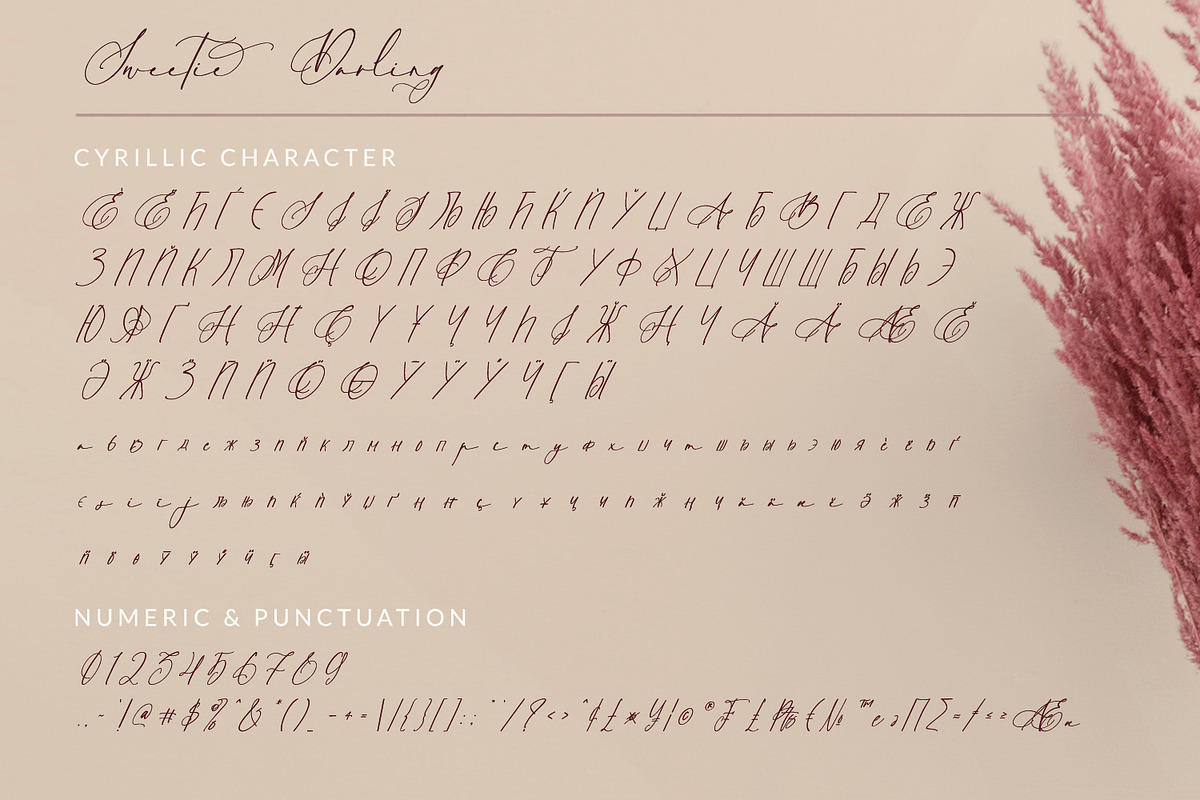 Sweetie Darling
CYRILLIC CHARACTER
Ѐ Ё Ђ Ѓ Є Ѕ І Ї Ј Љ Њ Ћ Ќ Ѝ Ў Џ А Б В Г Д Е Ж
З И Й К Л М Н О П Р С Т У Ф Х Ц Ч Ш Щ Ъ Ы Ь Э
Ю Я Ґ Ң Ҥ Ҫ Ү Ұ Ҷ Ҹ Һ Ӂ Ӈ Ӌ Ӑ Ӓ Ӕ Ӗ
Ӛ Ӝ Ӟ Ӣ Ӥ Ӧ Ө Ӯ Ӱ Ӳ Ӵ Ӷ Ӹ
а б в г д е ж з и й к л м н о п р с т у ф х ц ч ш щ ъ ы ь э ю я ѐ ё ђ ѓ
є ѕ і ї ј љ њ ћ ќ ѝ ў џ ґ ң ҥ ҫ ү ұ ҷ ҹ һ ӂ ӈ ӌ ӑ ӓ ӕ ӗ ӛ ӝ ӟ ӣ
ӥ ӧ ө ӯ ӱ ӳ ӵ ӷ ӹ
NUMERIC & PUNCTUATION
0 1 2 3 4 5 6 7 8 9